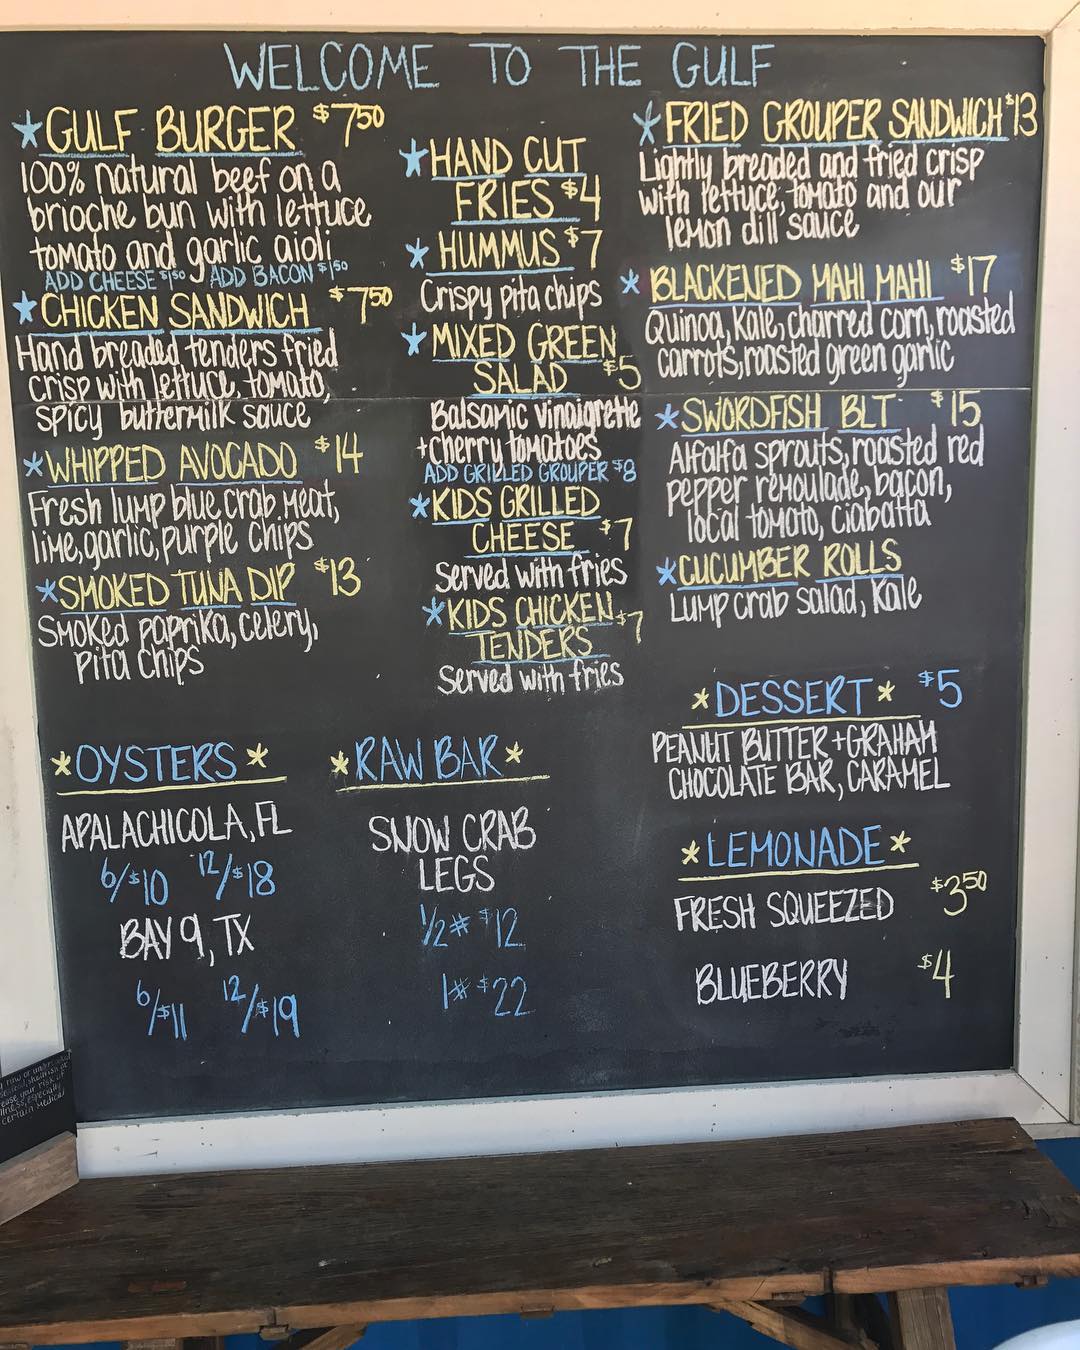 WELCOME TO THE GULF
*GULF BURGER $7.50
100% natural beef on a
brioche bun with lettuce
tomato and garlic aioli
ADD CHEESE $1.50 ADD BACON $1.50
*CHICKEN SANDWICH $7.50
Hand breaded tenders fried
crisp with lettuce, tomato,
spicy buttermilk sauce
*WHIPPED AVOCADO $14
Fresh lump blue crab meat,
lime, garlic, purple chips
*SMOKED TUNA DIP $13
Smoked paprika, celery,
Pita chips
*HAND CUT
FRIES $4
*HUMMUS $7
Crispy pita chips
*MIXED GREEN
SALAD $5
Balsamic vinaigrette
+cherry tomatoes
ADD GRILLED GROUPER $8
*KIDS GRILLED
CHEESE $7
Served with fries
*KIDS CHICKEN
TENDERS $7
Served with fries
*FRIED GROUPER SANDWICH $13
Lightly breaded and fried crisp
with lettuce, tomato and our
lemon dill sauce
*BLACKENED MAHI MAHI $17
Quinoa, Kale, charred corn, roasted
carrots, roasted green garlic
*SWORDFISH BLT $15
Alfalfa sprouts, roasted red
pepper remoulade, bacon,
local tomato, ciabatta
*CUCUMBER ROLLS
Lump crab salad, Kale
*DESSERT* $5
PEANUT BUTTER + GRAHAM
CHOCOLATE BAR, CARAMEL
*OYSTERS*
APALACHICOLA, FL
6/$10 12/$18
BAY 9, TX
6/$11 12/$19
*RAW BAR*
SNOW CRAB
LEGS
1/2# $12
1# $22
*LEMONADE*
FRESH SQUEEZED $3.50
BLUEBERRY $4
raw or under
ease your risk of
illness, especially
certain medical